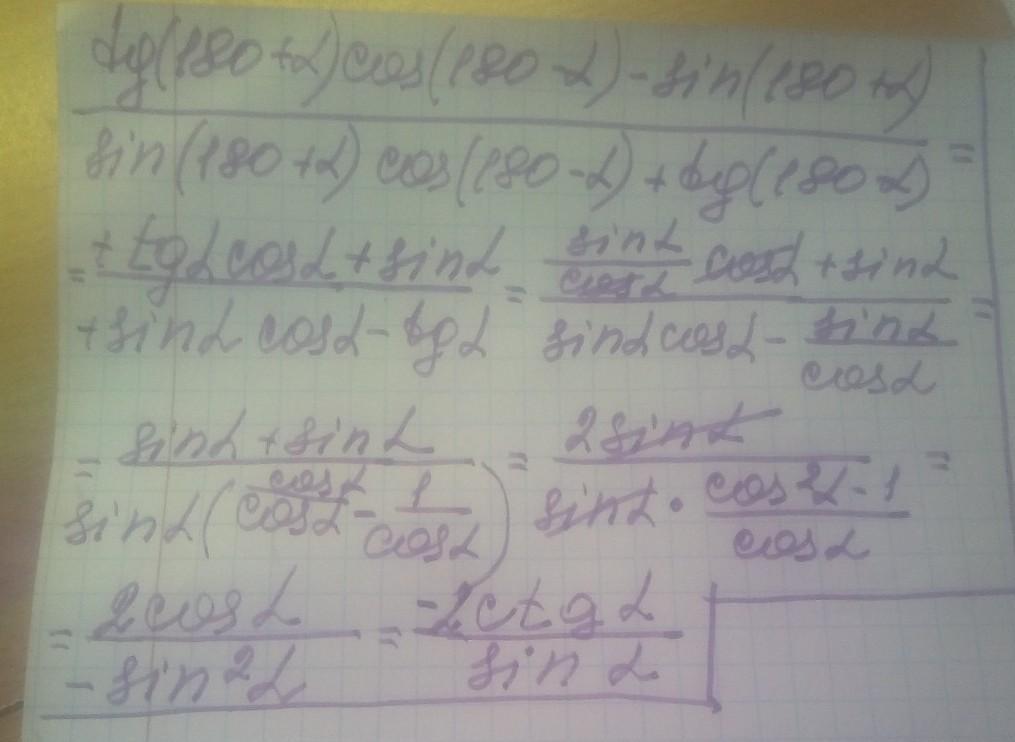 tg(180+α)cos(180-α)-sin(180+α)
sin(180+α) cos(180-α)+tg(180-α) =
= +tgα cosα+sinα / +sinα cosα-tgα = sinα/cosα cosα+sinα / sinα cosα - sinα/cosα =
= sinα+sinα / sinα(cosα/cosα - 1/cosα) = 2sinα / sinα · cos²α-1 / cosα =
= 2cosα / -sin²α = -2ctgα / sinα